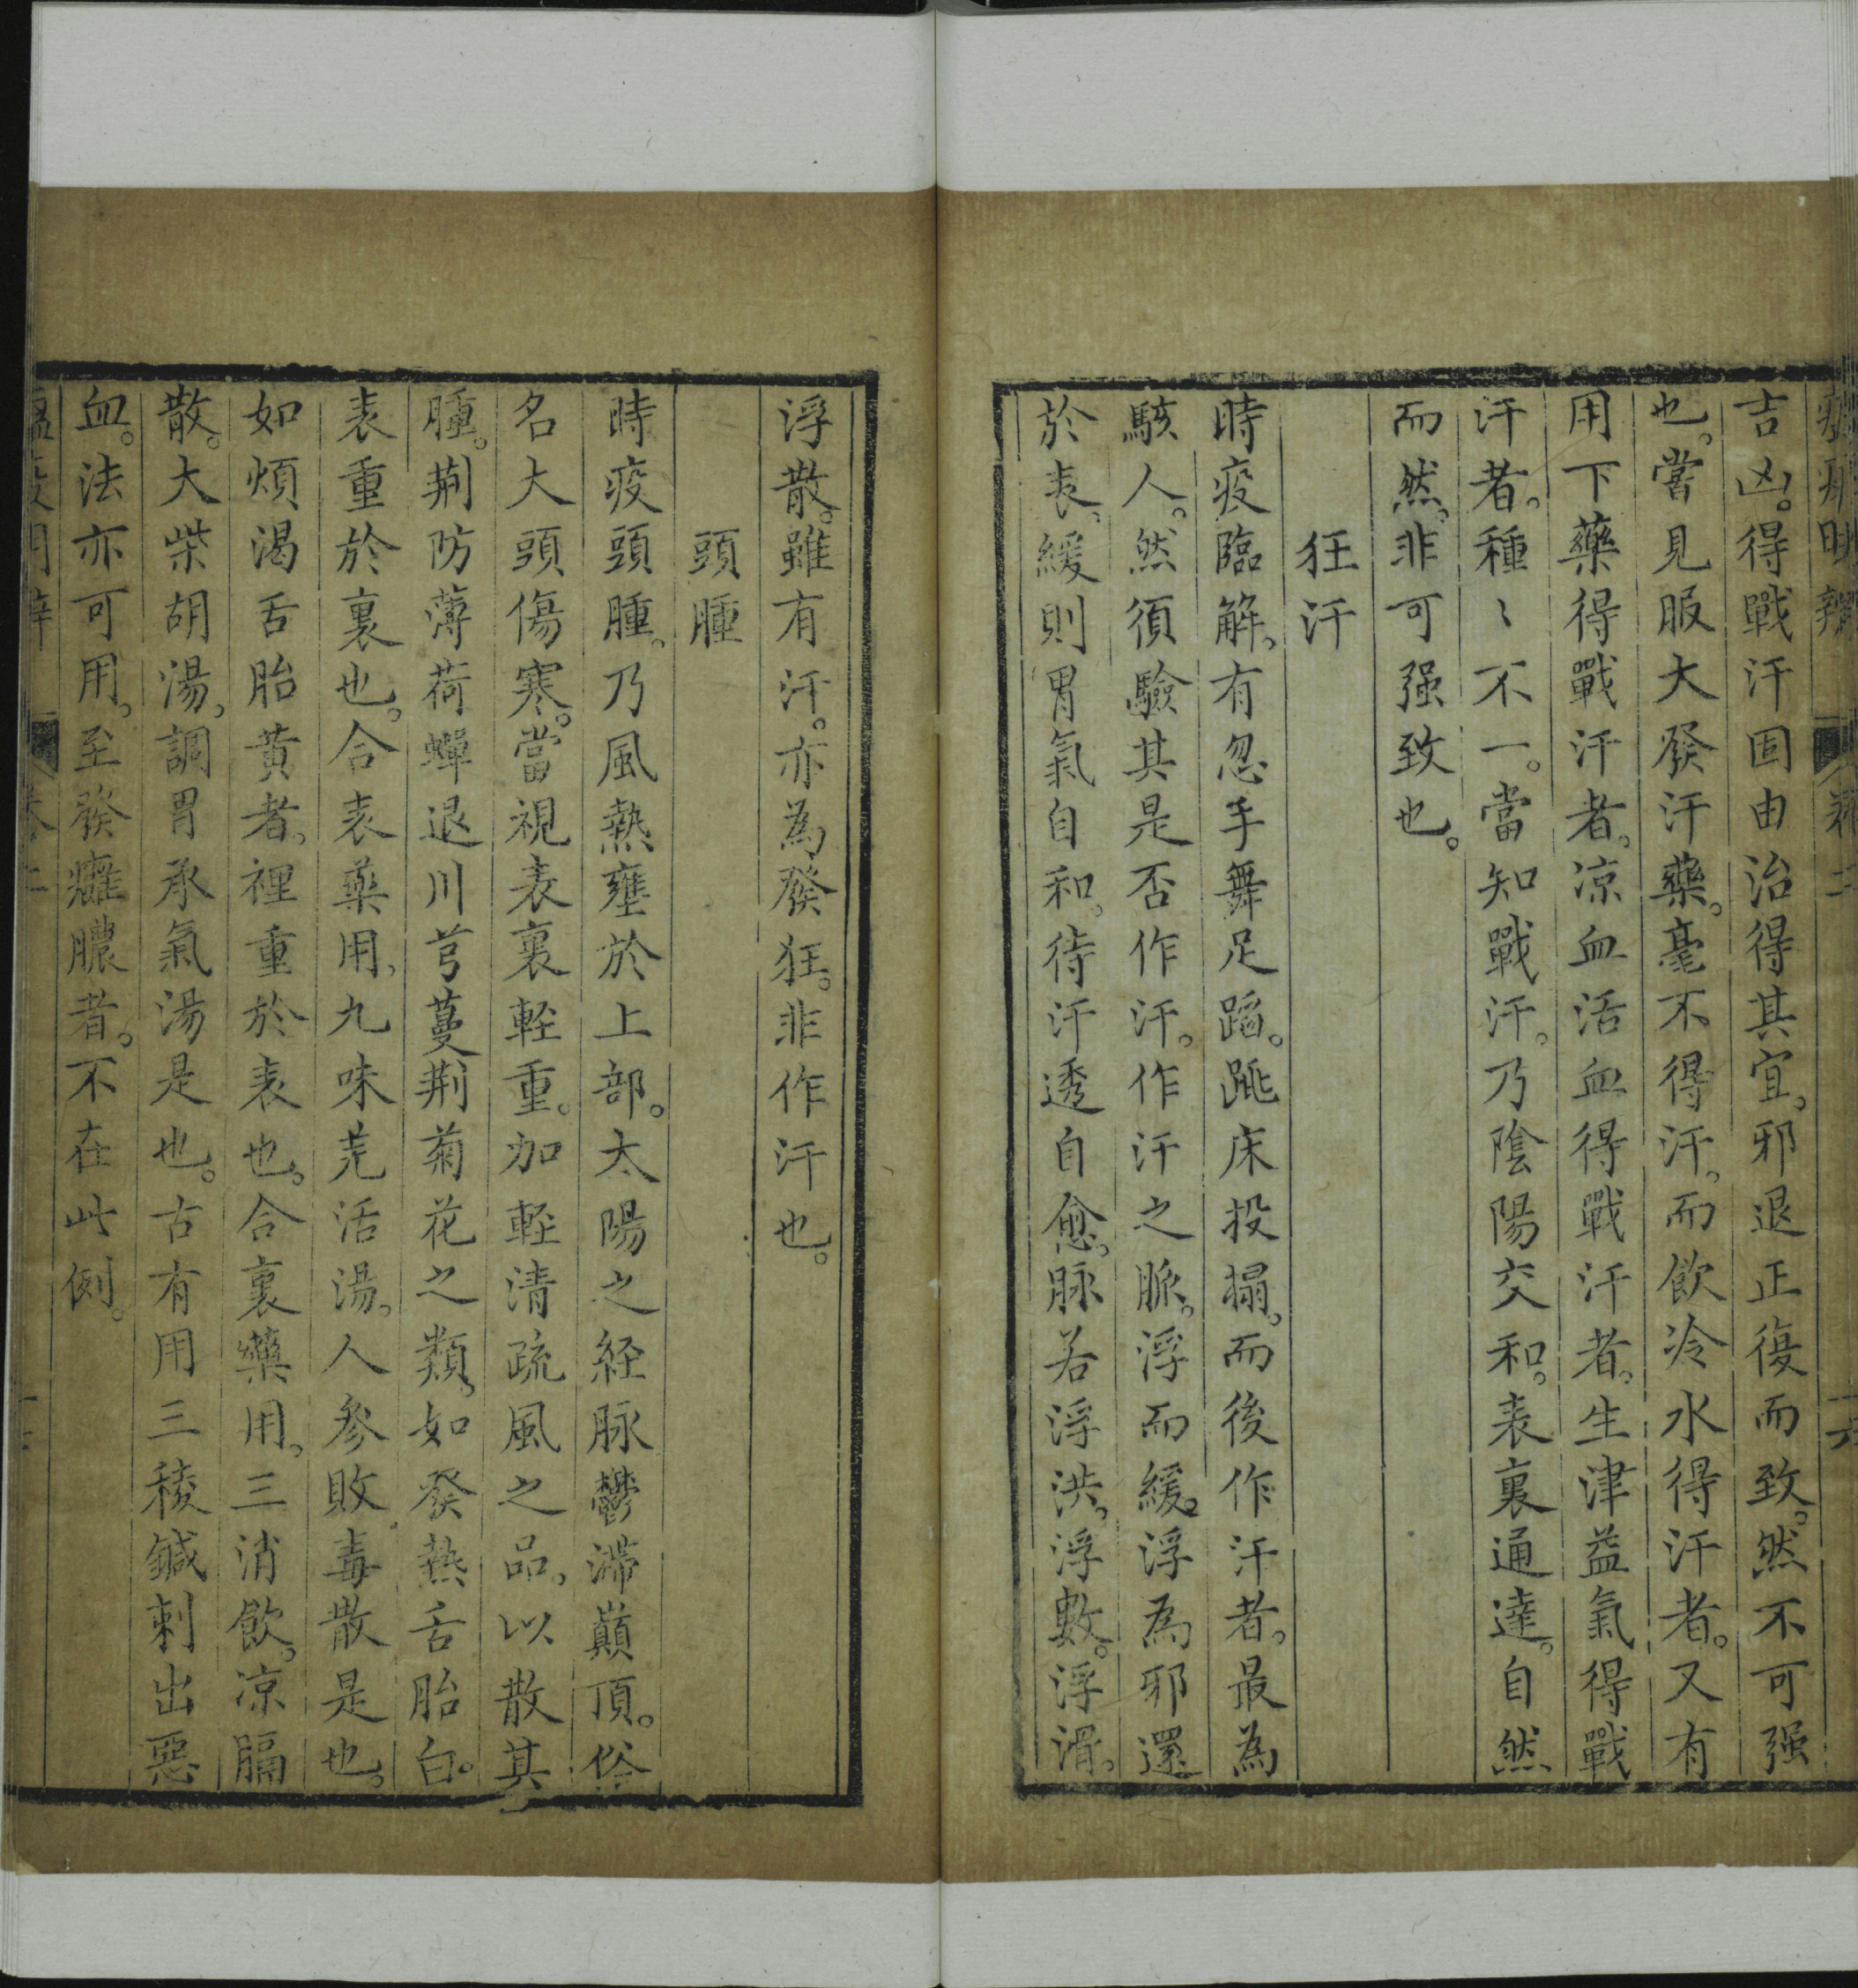 吉凶。得戰汗固由治得其宜。邪退正復而致。然不可强
也。嘗見服大發汗藥。毫不得汗。而飲冷水得汗者。又有
用下藥得戰汗者。凉血活血得戰汗者。生津益氣得戰
汗者。種〻不一。當知戰汗。乃陰陽交和。表裏通達。自然
而然。非可强致也。
狂汗
時疫臨解。有忽手舞足蹈。跳床投榻。而後作汗者。最為
駭人。然須驗其是否作汗。作汗之脈。浮而緩。浮為邪還
於表。緩則胃氣自和。待汗透自愈。脉若浮洪。浮數。浮滑。
浮散。雖有汗。亦為發狂。非作汗也。
頭腫
時疫頭腫。乃風熱壅於上部。太陽之経脉鬱滞巔頂。俗
名大頭傷寒。當視表裏軽重。加軽清疏風之品。以散其
腫。荆防薄荷蟬退川芎蔓荆菊花之類。如發熱舌胎白。
表重於裏也。合表藥用。九味羌活湯。人參敗毒散是也。
如煩渴舌胎黄者。裡重於表也。合裏藥用。三消飲。凉膈
散。大柴胡湯。調胃承氣湯是也。古有用三稜鍼刺出惡
血。法亦可用。至發癰膿者。不在此例。